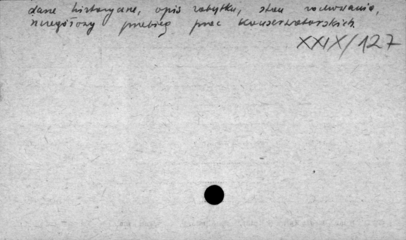 dane historyczne, opis zabytku, stan zachowania,
szczegółowy przebieg prac konserwatorskich
XXIX/127